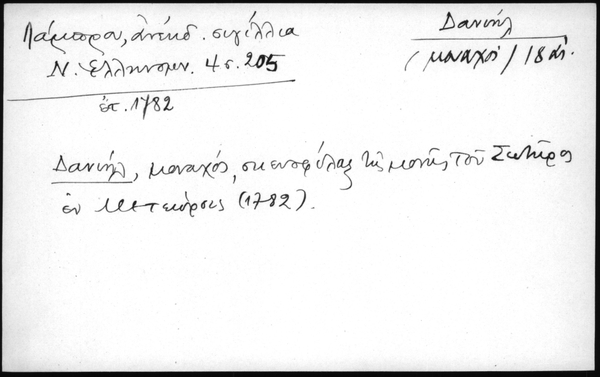 Λάμπρου, ἀνέκδ. σιγίλλια
Ν. Ἑλληνομν. 4 σ. 205
ἐτ. 1782
Δανιήλ
(μοναχός) 18 αἰ.
Δανιήλ, μοναχός, σκευοφύλαξ τῆς μονῆς τοῦ Σωτῆρος
ἐν Μετεώροις (1782).